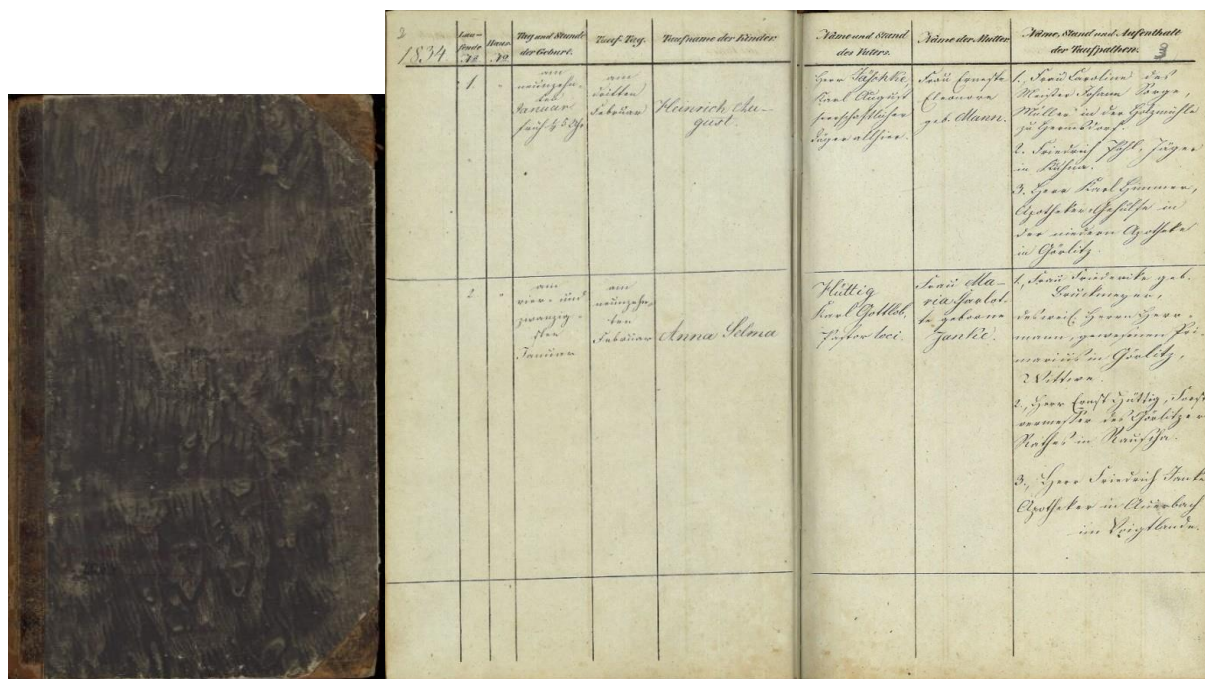 2
1834.
Lau-
fende
No.
Haus
No.
Tag und Stunde
der Geburt.
Tauf-Tag.
Taufname der Kinder
Name und Stand
des Vaters.
Name der Mutter
Name, Stand und Aufenthalt
der Taufpathen.
3
1.
am
neunzehn-
ten
Januar
früh ½ 5 Uhr
am
dritten
Februar
Heinrich Au-
gust.
Herr Jäschke
Karl August
herrschaftlicher
Jäger allhier.
Frau Ernestine
Eleonore
geb. Mann.
1., Frau Caroline des
Meister Johann Sorge,
Müller in der Holzmühle
zu Hermsdorf.
2. Friedrich Pohl, Jäger
in Kuhna.
3. Herr Karl Himmer,
Apotheker-Gehülfe in
der niedern Apotheke
in Görlitz.
2
am
vier- und
zwanzig-
sten
Januar
am
neunzehn-
ten
Februar
Anna Selma
Hüttig
Karl Gottlob,
Pastor loci.
Frau Ma-
ria Charlot-
te geborne
Janke.
1., Frau Friederike geb.
Bruckmeyer,
des weil. Herrn Herr-
mann, gewesenen Pri-
marius in Görlitz,
Wittwe.
2., Herr Ernst Hüttig, Forst-
vermesser des Görlitzer
Rathes in Rauscha.
3., Herr Friedrich Janke
Apotheker in Auerbach
im Voigtlande.